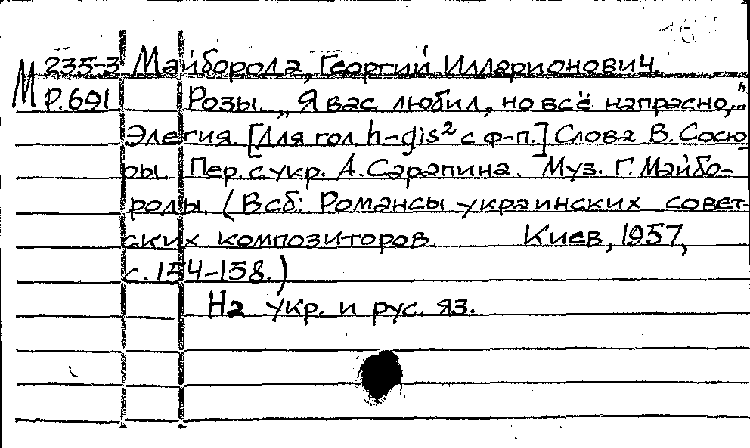 М 235-3 Майборода, Георгий Илларионович.
Р.691 Розы. „Я вас любил, но всё напрасно,"
Элегия. [Для гол. h-gis² с ф-п.] Слова В. Сосю-
ры. Пер. с укр. А. Сарапина. Муз. Г. Майбо-
роды. (В сб: Романсы украинских совет-
ских композиторов. Киев, 1957,
с. 154-158.)
На укр. и рус. яз.